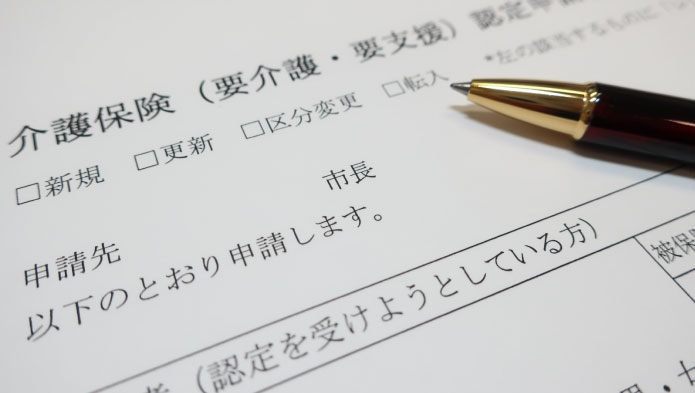 介護保険（要介護・要支援）認定申
*左の該当するものに
□新規 □更新 □区分変更 □転入
市長
申請先
以下のとおり申請します。
被保
（認定を受けようとしている方）